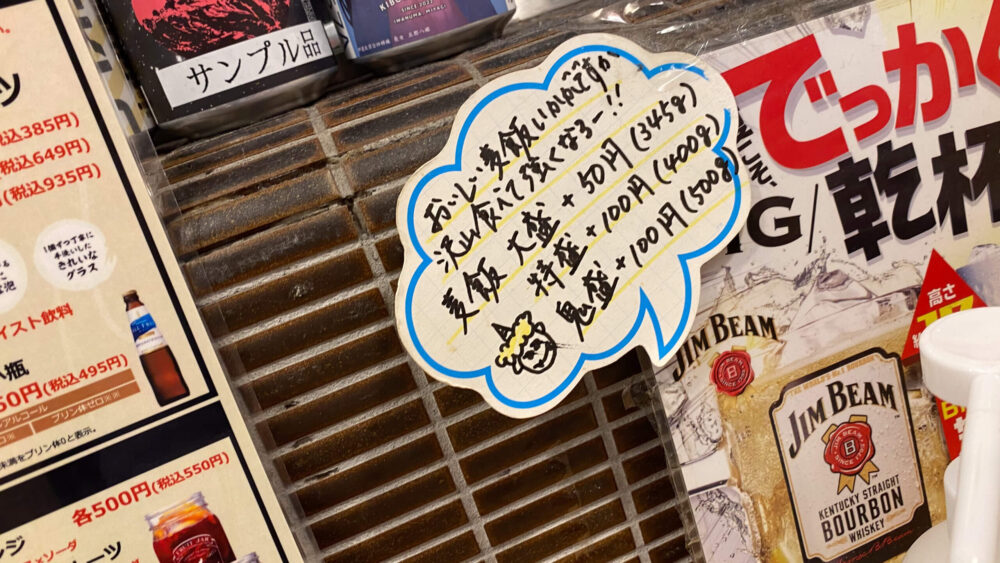 サンプル品
SINCE 2022
IWANUMA-MIYAGI
おいしい麦飯いかがですか
沢山食べて強くなろー!!
麦飯 大盛+50円(345g)
特盛+100円(400g)
鬼盛+100円(500g)
税込385円)
(税込649円)
税込935円)
1個ずつ丁寧に
手洗いした
きれいな
グラス
イスト飲料
小瓶
50円(税込495円)
アルコール
プリン体ゼロ※※
未満をプリン体0と表示。
各500円(税込550円)
でっかく
G/乾杯
高さ
JIM BEAM
JIM BEAM
KENTUCKY STRAIGHT
BOURBON
WHISKEY